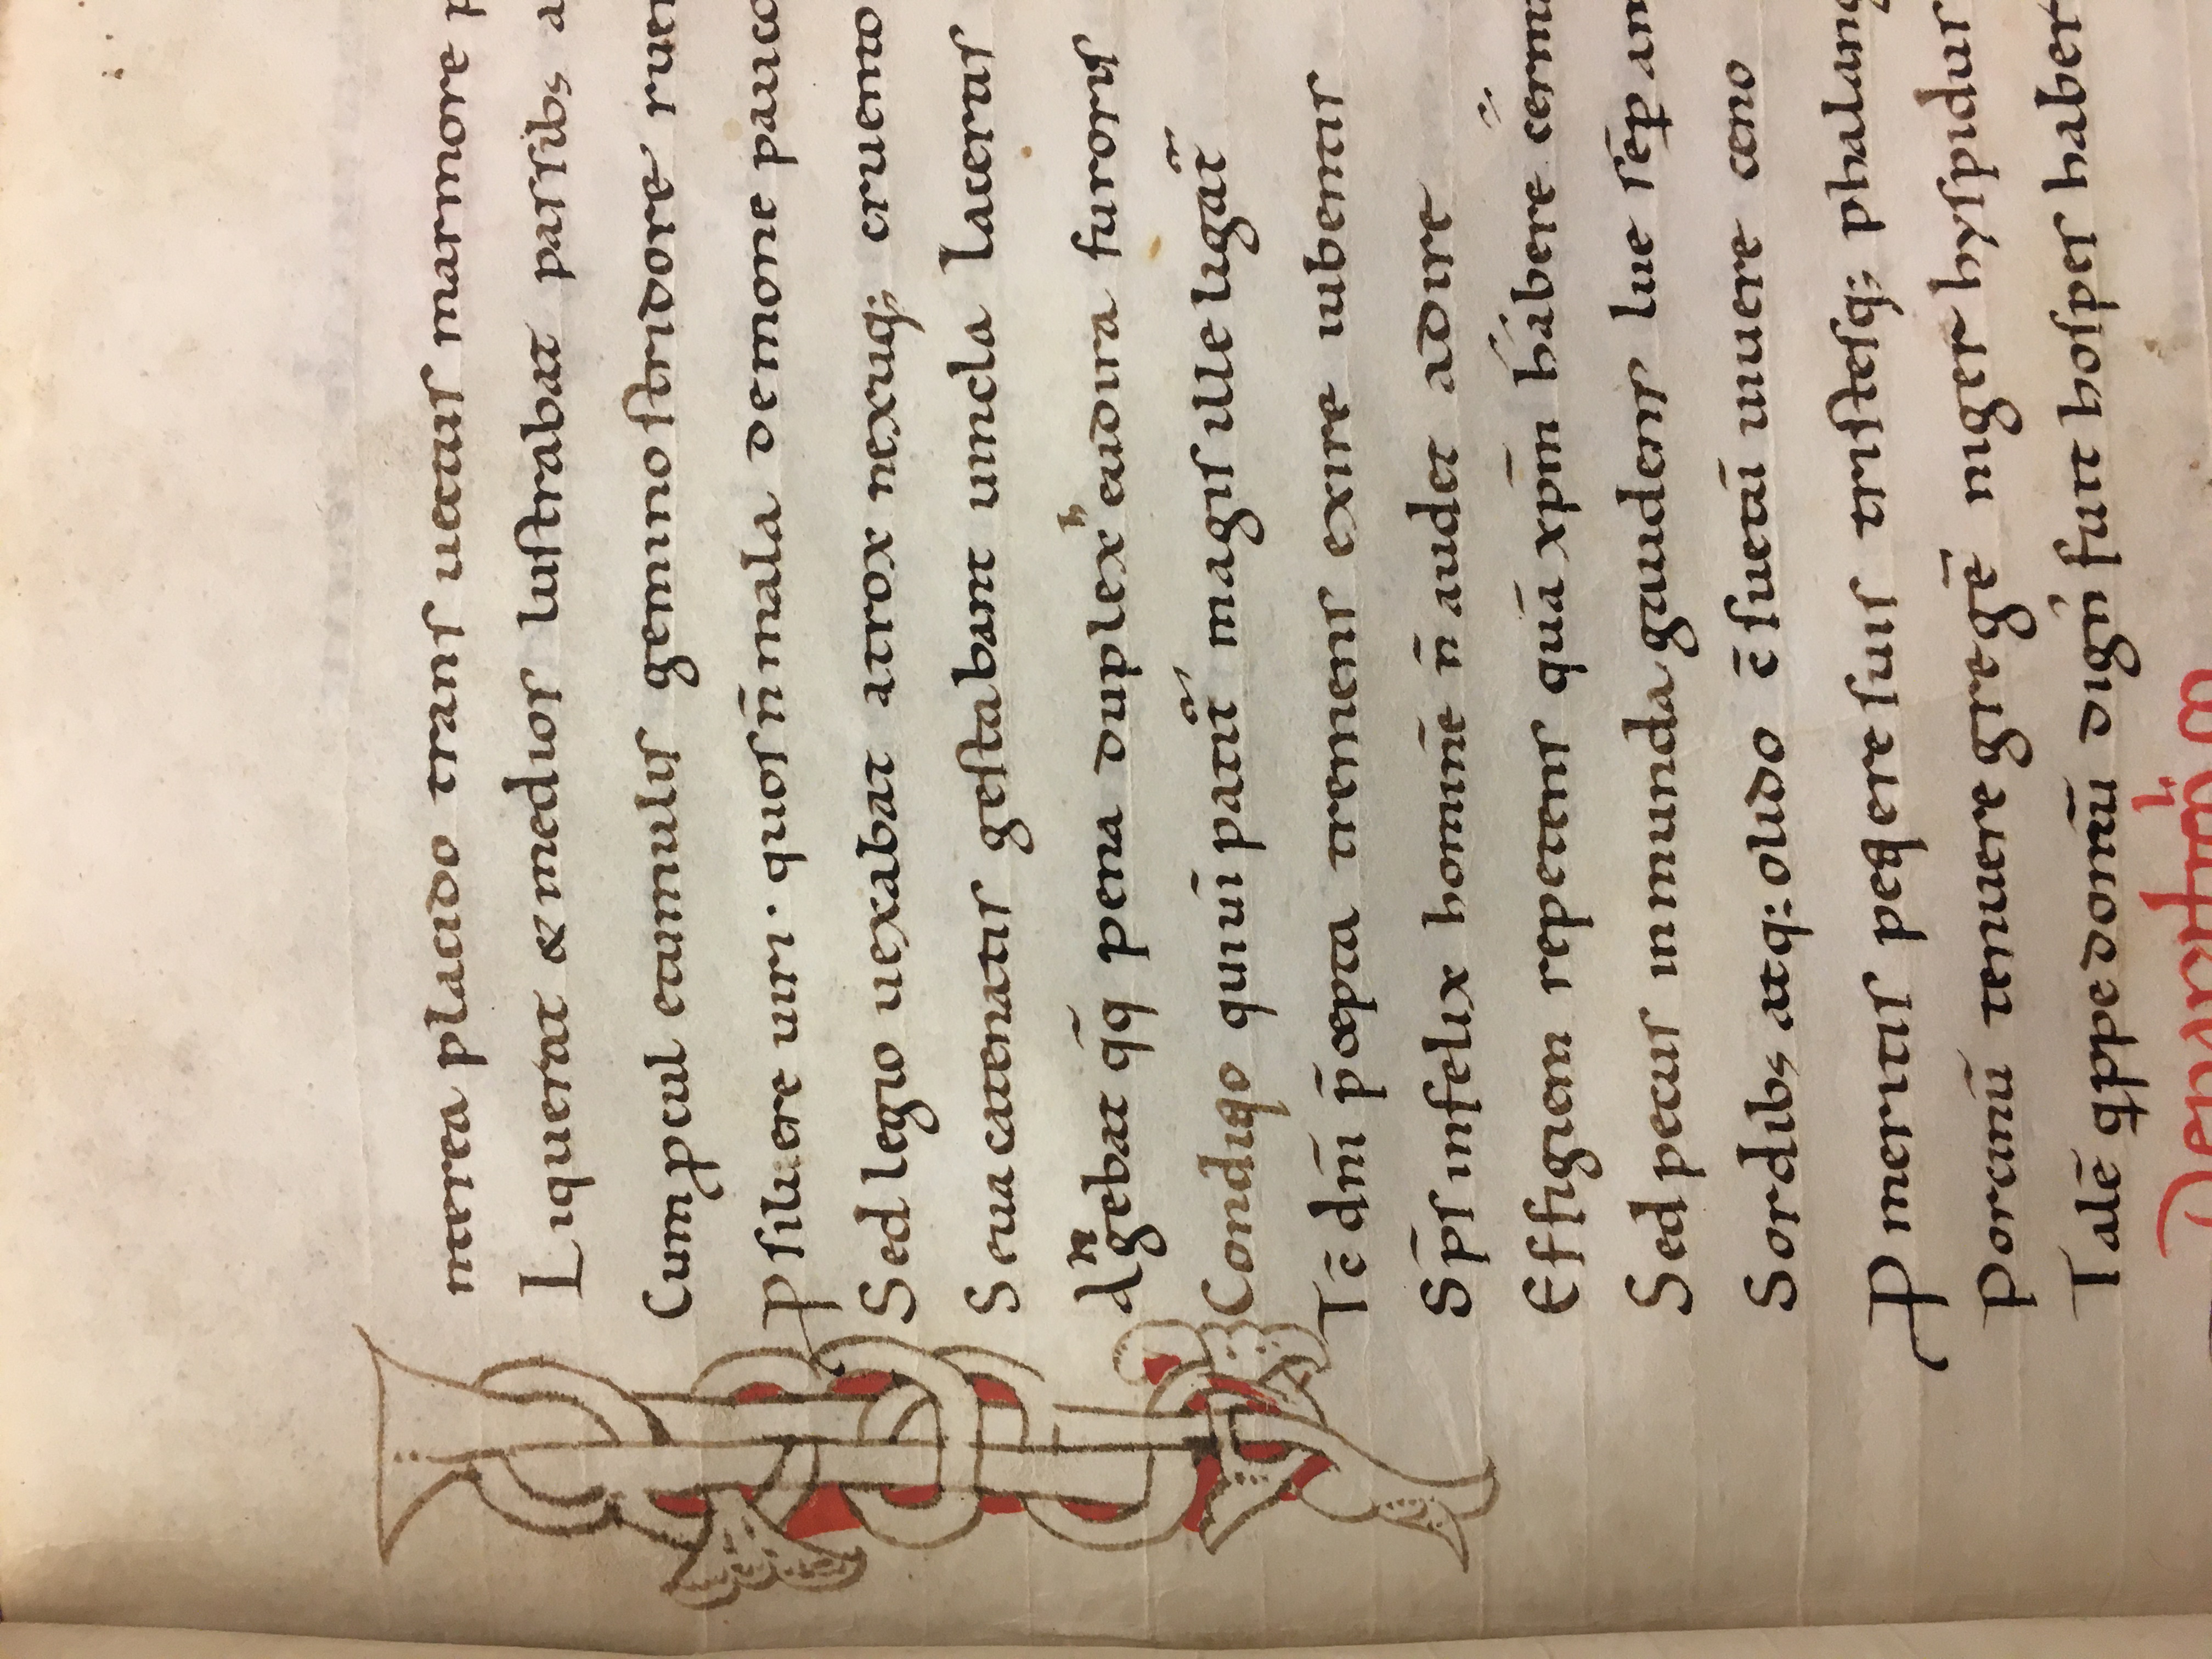 nterea placido trans uectus marmore p
Liquerat & medios lustrabat partib; a
Cum pcul etumulis gemino stridore ruen
Psiluere uiri · quos n̄ mala demone pauco
Sed legio uexabat atrox nexuq; cruento
Seua catenatis gestabant uincla lacertis
Angebat q̄q pena duplex eadira furoris
Condiqo quiuī patit̄ magis ille ligat̄
Tc̄ dn̄i p̄cepta tremens exire iubentis
Sp̄s infelix homine n̄ audet adire
Effigiem repetens quā xp̄m habere
Sed pecus inmunda gaudens lue
Sordib; atq; olido c̄sueta uiuere ceno
P meritis peqere suis tristesq; phalang
Porcinū tenuere gregē niger hyspidus
Talē qppe domū digni sunt hospes habet